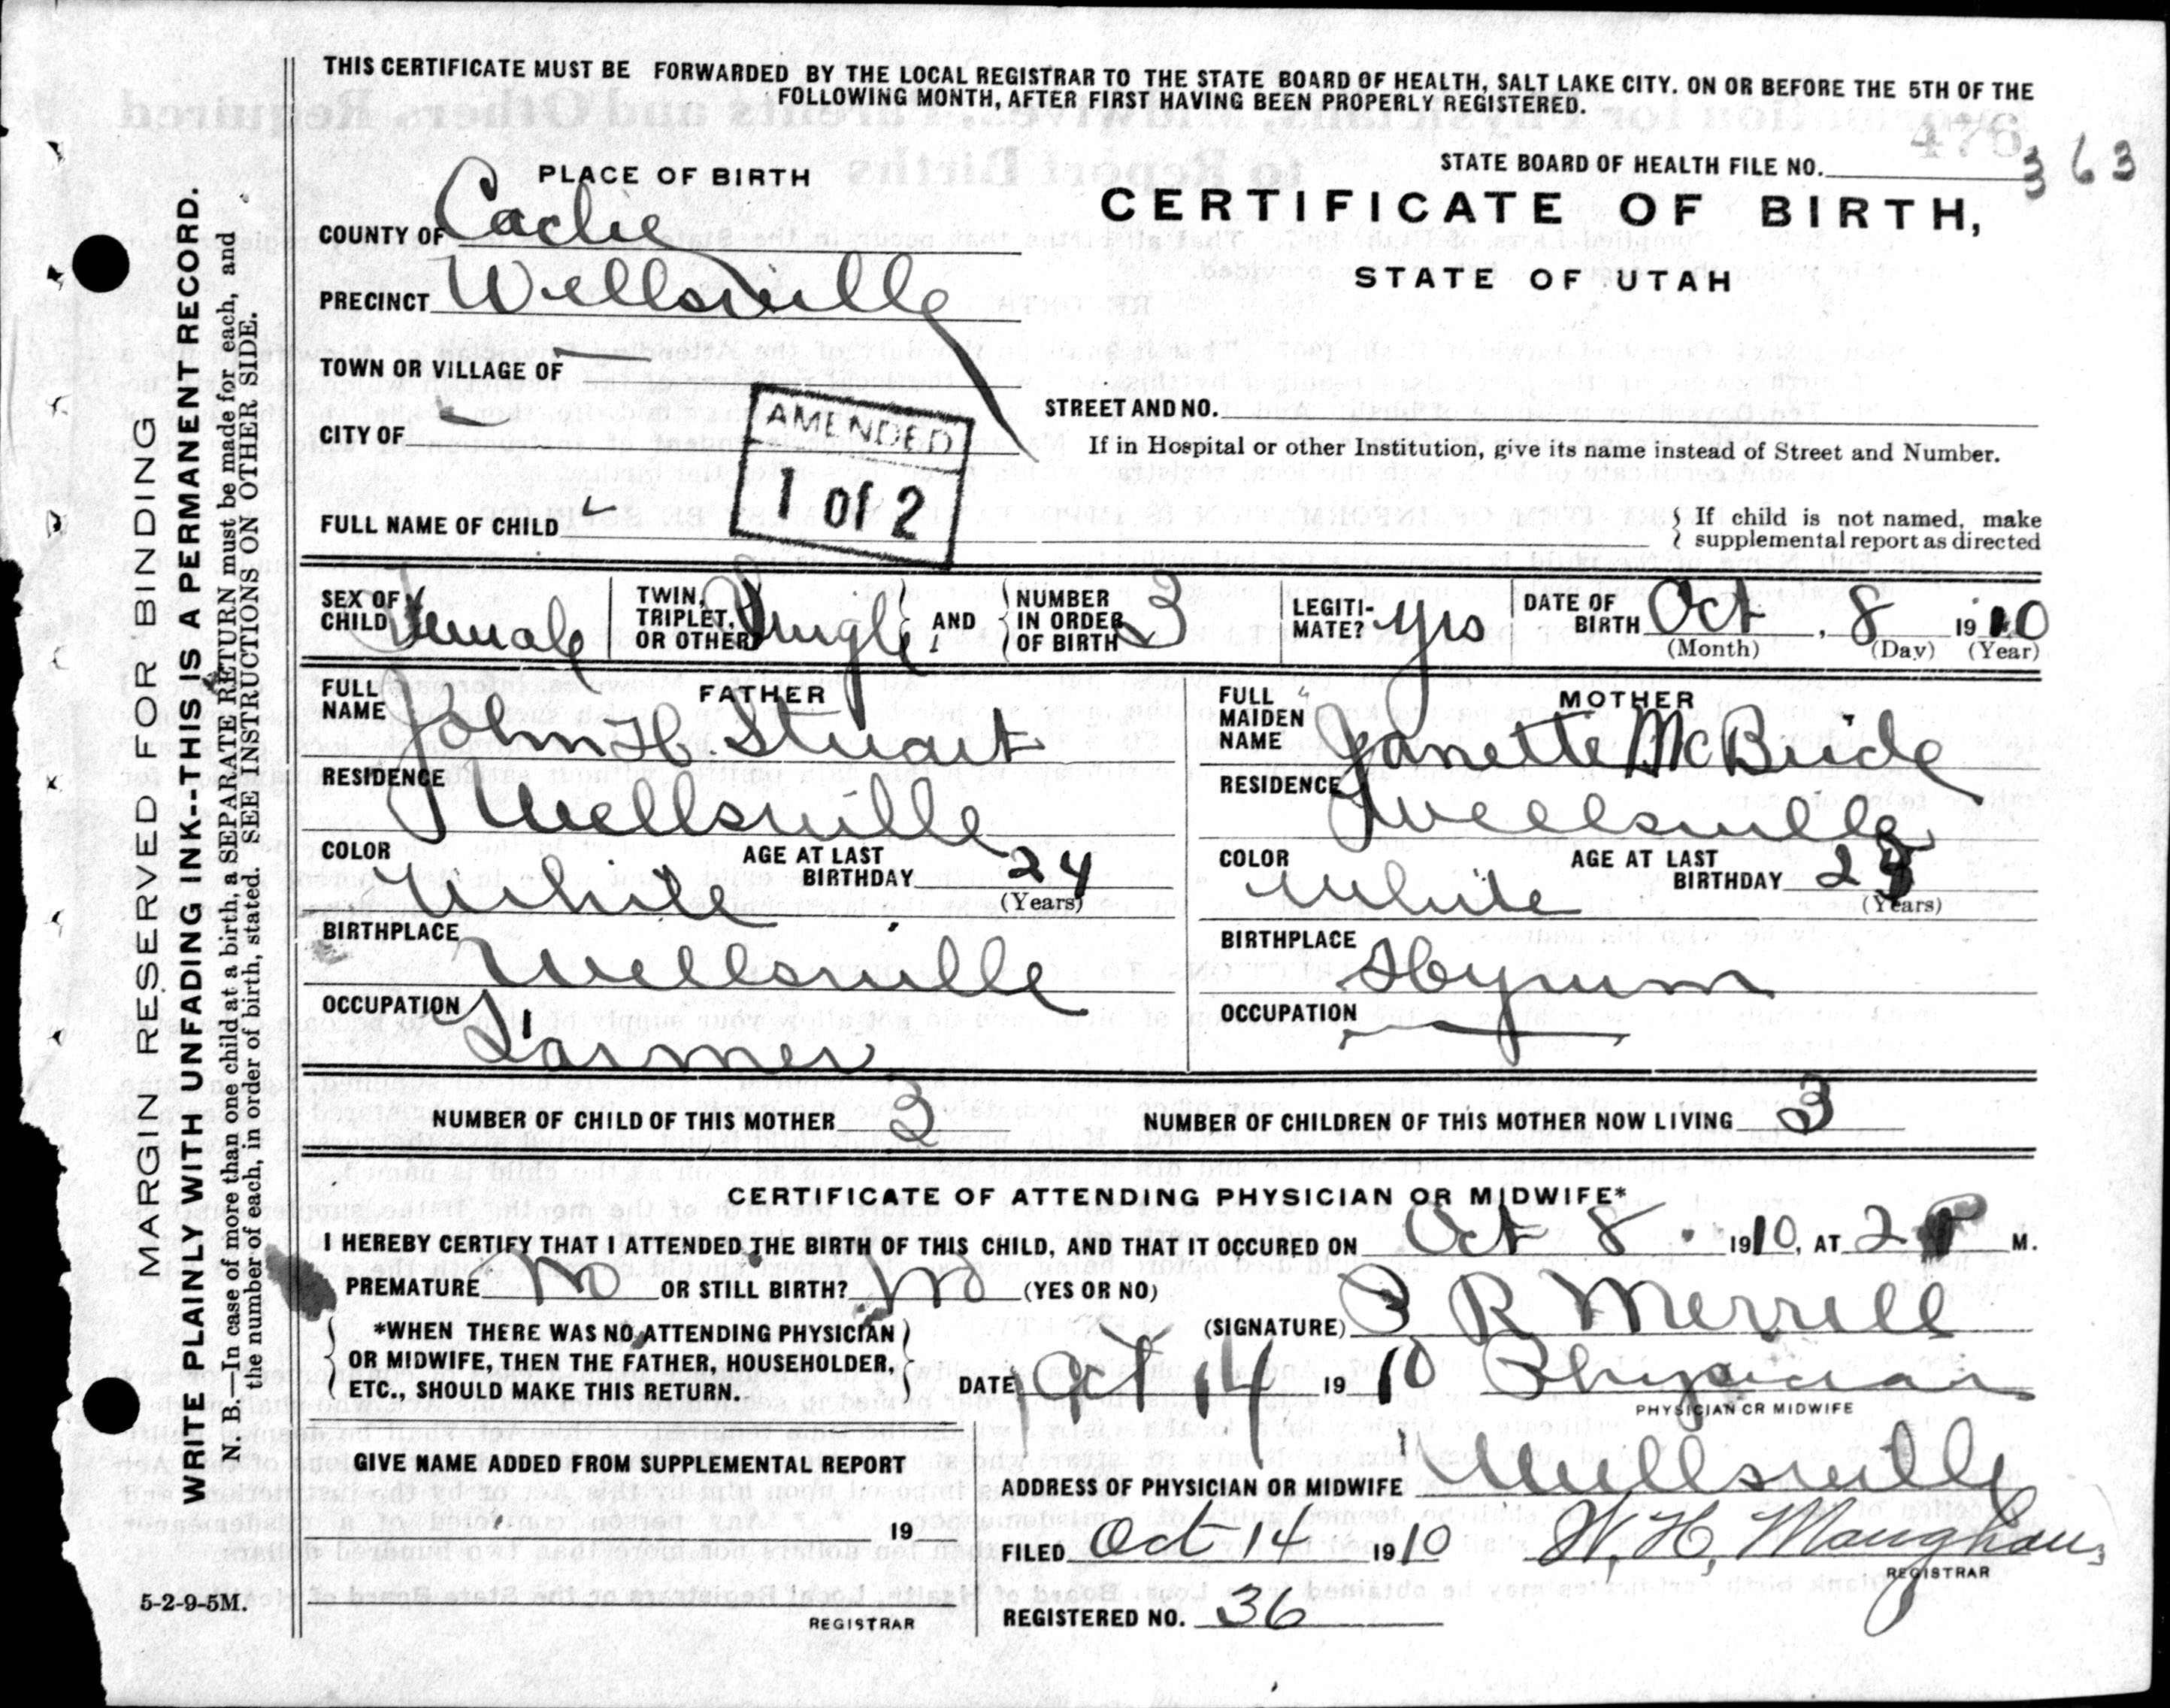 THIS CERTIFICATE MUST BE FORWARDED BY THE LOCAL REGISTRAR TO THE STATE BOARD OF HEALTH, SALT LAKE CITY. ON OR BEFORE THE 5TH OF THE
FOLLOWING MONTH, AFTER FIRST HAVING BEEN PROPERLY REGISTERED.
476
STATE BOARD OF HEALTH FILE NO. 363
PLACE OF BIRTH
CERTIFICATE OF BIRTH,
STATE OF UTAH
COUNTY OF Cache
PRECINCT Wellsville
TOWN OR VILLAGE OF
STREET AND NO.
CITY OF
If in Hospital or other Institution, give its name instead of Street and Number.
AMENDED
1 of 2
FULL NAME OF CHILD
If child is not named, make
supplemental report as directed
SEX OF CHILD Female
TWIN, TRIPLET, OR OTHER Single
AND
NUMBER IN ORDER OF BIRTH 3
LEGITI-MATE? yes
DATE OF BIRTH Oct, 8 1910
(Month) (Day) (Year)
FATHER
FULL NAME John H. Stuart
RESIDENCE Wellsville
COLOR White
AGE AT LAST BIRTHDAY 24
(Years)
BIRTHPLACE Wellsville
OCCUPATION Farmer
MOTHER
FULL MAIDEN NAME Janette McBride
RESIDENCE Wellsville
COLOR White
AGE AT LAST BIRTHDAY
(Years)
BIRTHPLACE Hyrum
OCCUPATION
NUMBER OF CHILD OF THIS MOTHER 3
NUMBER OF CHILDREN OF THIS MOTHER NOW LIVING 3
CERTIFICATE OF ATTENDING PHYSICIAN OR MIDWIFE*
I HEREBY CERTIFY THAT I ATTENDED THE BIRTH OF THIS CHILD, AND THAT IT OCCURED ON Oct 8. 1910, AT 2 M.
PREMATURE no OR STILL BIRTH? no (YES OR NO)
*WHEN THERE WAS NO ATTENDING PHYSICIAN
OR MIDWIFE, THEN THE FATHER, HOUSEHOLDER,
ETC., SHOULD MAKE THIS RETURN.
(SIGNATURE) R Merrill
DATE Oct 14 1910 Physician
PHYSICIAN OR MIDWIFE
GIVE NAME ADDED FROM SUPPLEMENTAL REPORT
19
REGISTRAR
ADDRESS OF PHYSICIAN OR MIDWIFE Wellsville
FILED Oct 14 1910 W, H, Maughan,
REGISTRAR
REGISTERED NO. 36
5-2-9-5M.
MARGIN RESERVED FOR BINDING
WRITE PLAINLY WITH UNFADING INK--THIS IS A PERMANENT RECORD.
N. B.—In case of more than one child at a birth, a SEPARATE RETURN must be made for each, and
the number of each, in order of birth, stated. SEE INSTRUCTIONS ON OTHER SIDE.